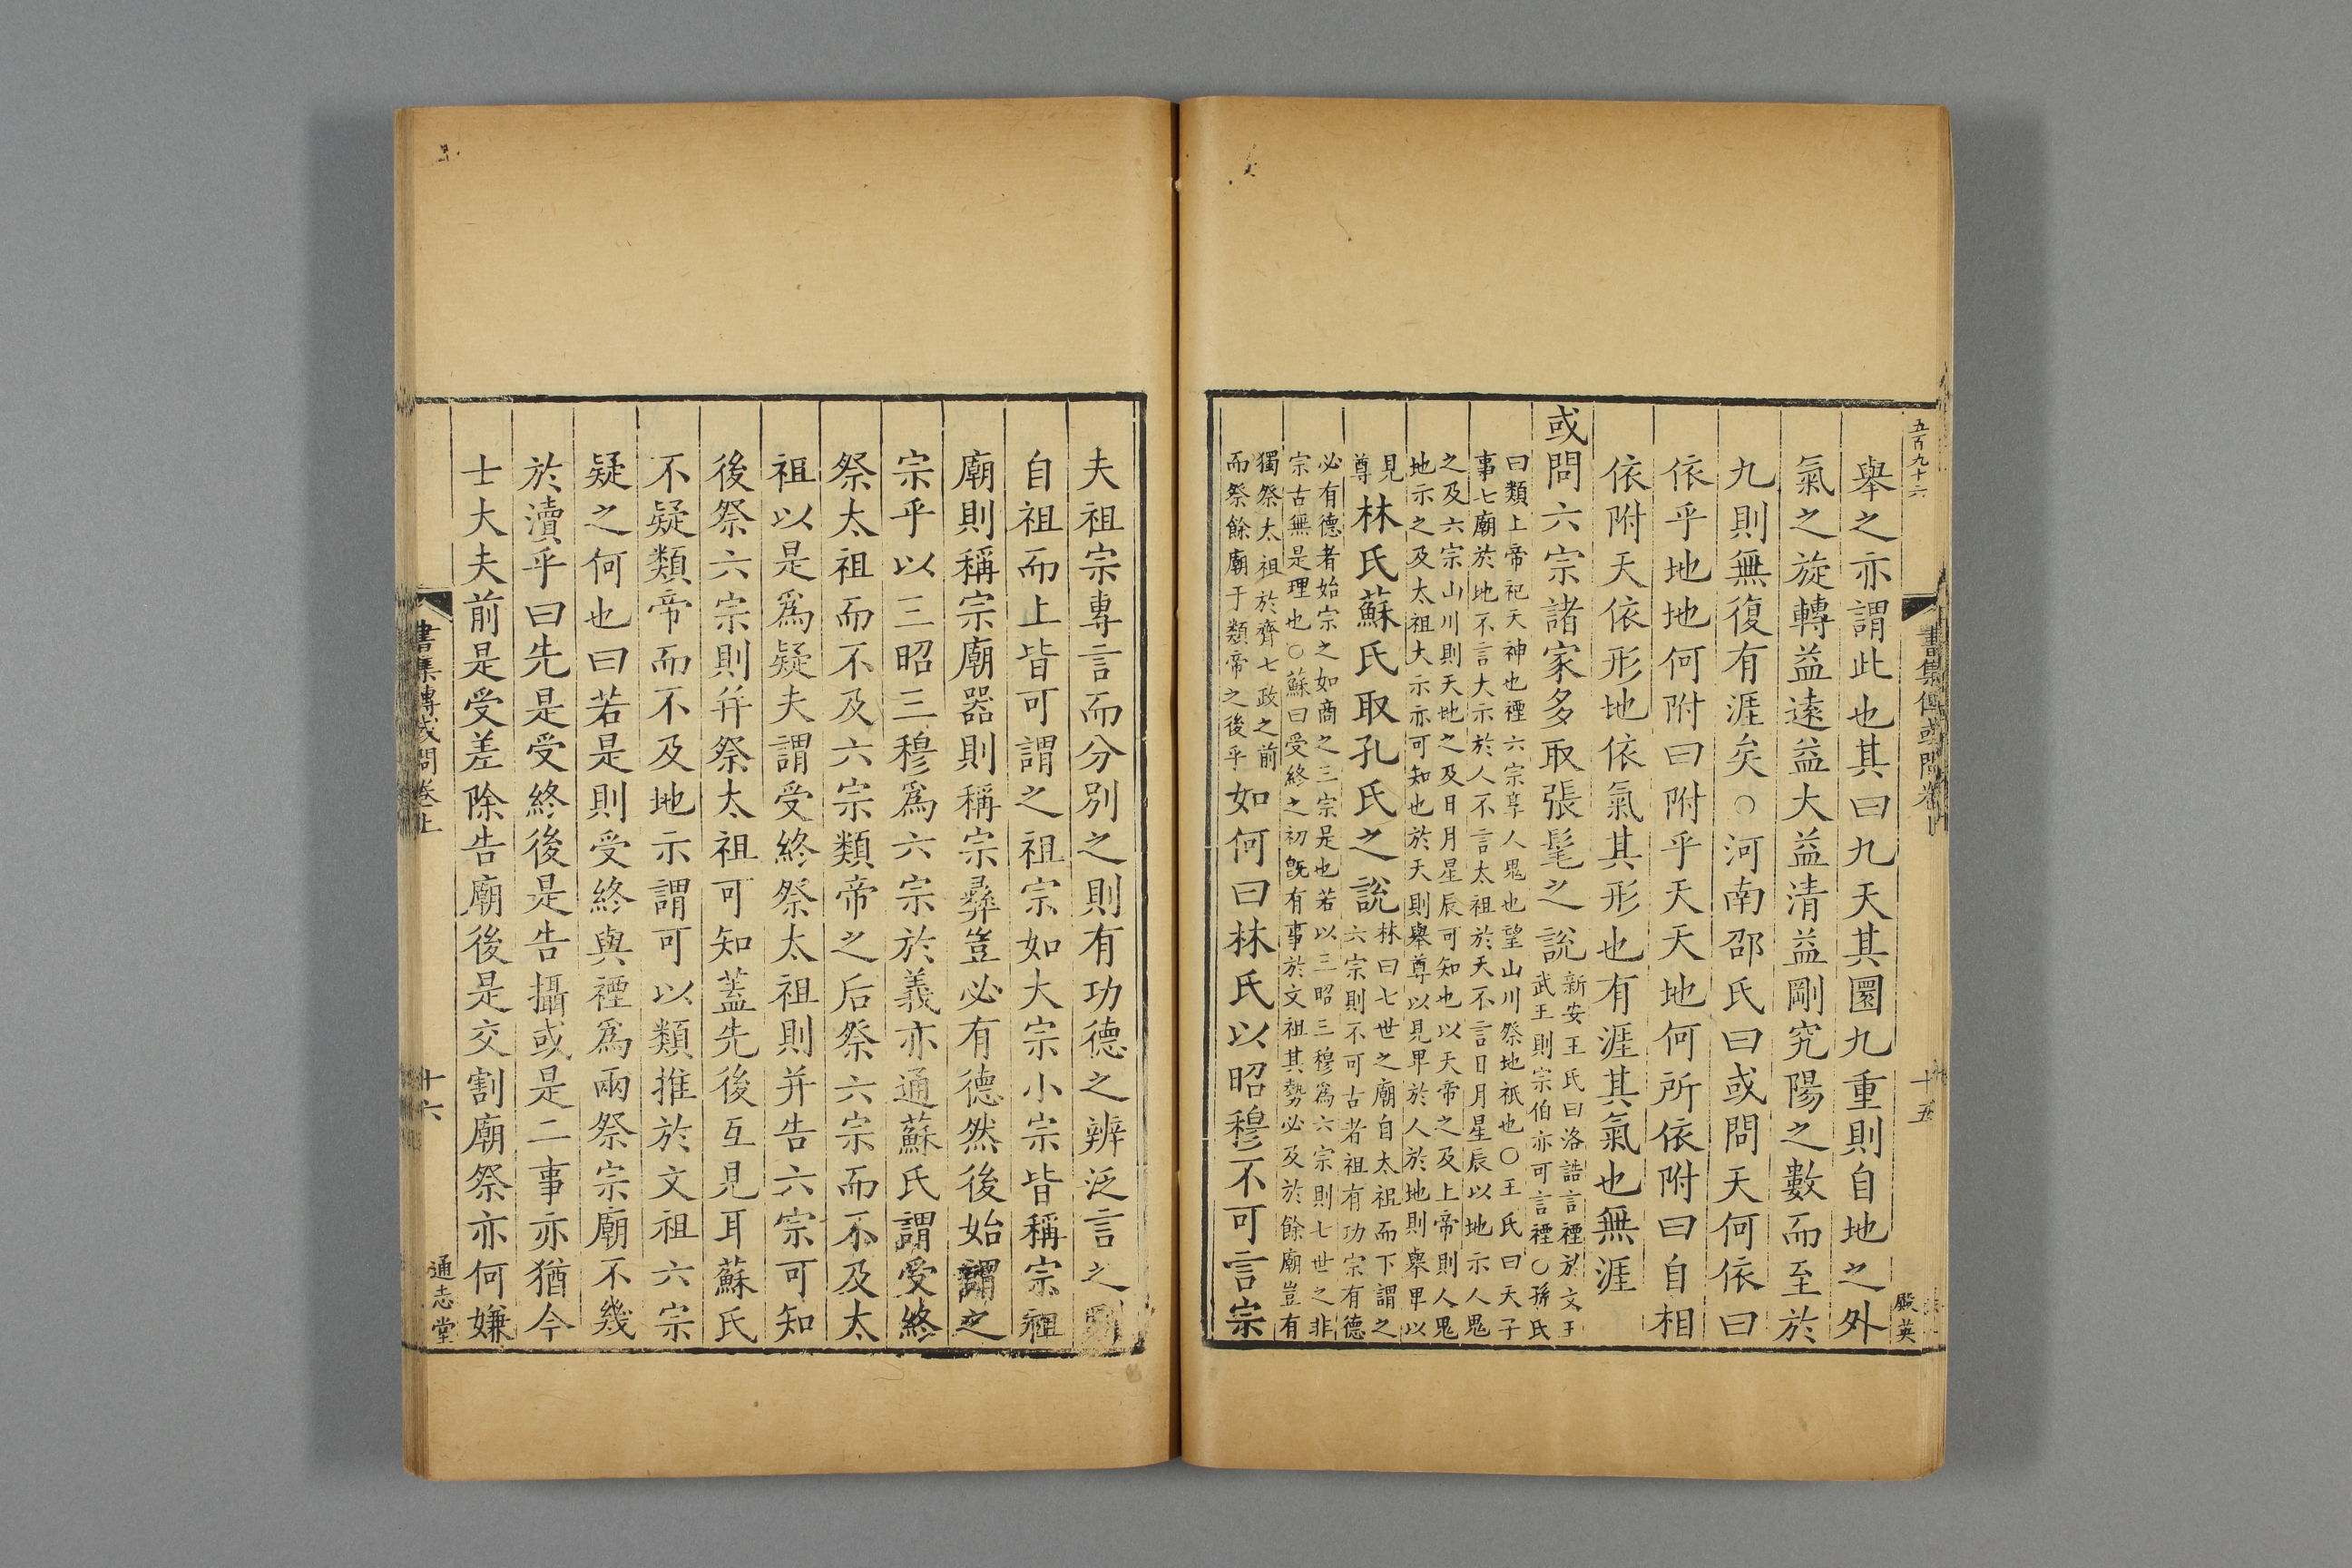 五百九十六
書集傳或問卷上
十五
殿英
舉之亦謂此也其曰九天其圜九重則自地之外
氣之旋轉益遠益大益清益剛究陽之數而至於
九則無復有涯矣○河南邵氏曰或問天何依曰
依乎地地何附曰附乎天天地何所依附曰自相
依附天依形地依氣其形也有涯其氣也無涯
或問六宗諸家多取張髦之說
新安王氏曰洛誥言禋於文王
武王則宗伯亦可言禋○孫氏
曰類上帝祀天神也禋六宗享人鬼也望山川祭地祇也○王氏曰天子
事七廟於地不言大示於人不言太祖於天不言日月星辰以地示人鬼
之及六宗山川則天地之及日月星辰可知也以天帝之及上帝則人鬼
地示之及太祖大示亦可知也於天則舉尊以見卑於人於地則舉卑以
見
尊
林氏蘇氏取孔氏之說
林曰七世之廟自太祖而下謂之
六宗則不可古者祖有功宗有德
必有德者始宗之如商之三宗是也若以三昭三穆爲六宗則七世之非
宗古無是理也○蘇曰受終之初旣有事於文祖其勢必及於餘廟豈有
獨祭太祖於齊七政之前
而祭餘廟于類帝之後乎
如何曰林氏以昭穆不可言宗
夫祖宗專言而分別之則有功德之辨泛言之則
自祖而上皆可謂之祖宗如大宗小宗皆稱宗祖
廟則稱宗廟器則稱宗彝豈必有德然後始謂之
宗乎以三昭三穆爲六宗於義亦通蘇氏謂受終
祭太祖而不及六宗類帝之后祭六宗而不及太
祖以是爲疑夫謂受終祭太祖則并告六宗可知
後祭六宗則并祭太祖可知蓋先後互見耳蘇氏
不疑類帝而不及地示謂可以類推於文祖六宗
疑之何也曰若是則受終與禋爲兩祭宗廟不幾
於瀆乎曰先是受終後是告攝或是二事亦猶今
士大夫前是受差除告廟後是交割廟祭亦何嫌
書集傳或問卷上
十六
通志堂